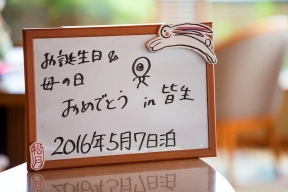 お誕生日&
母の日
おめでとう in 皆生
2016年5月7日泊